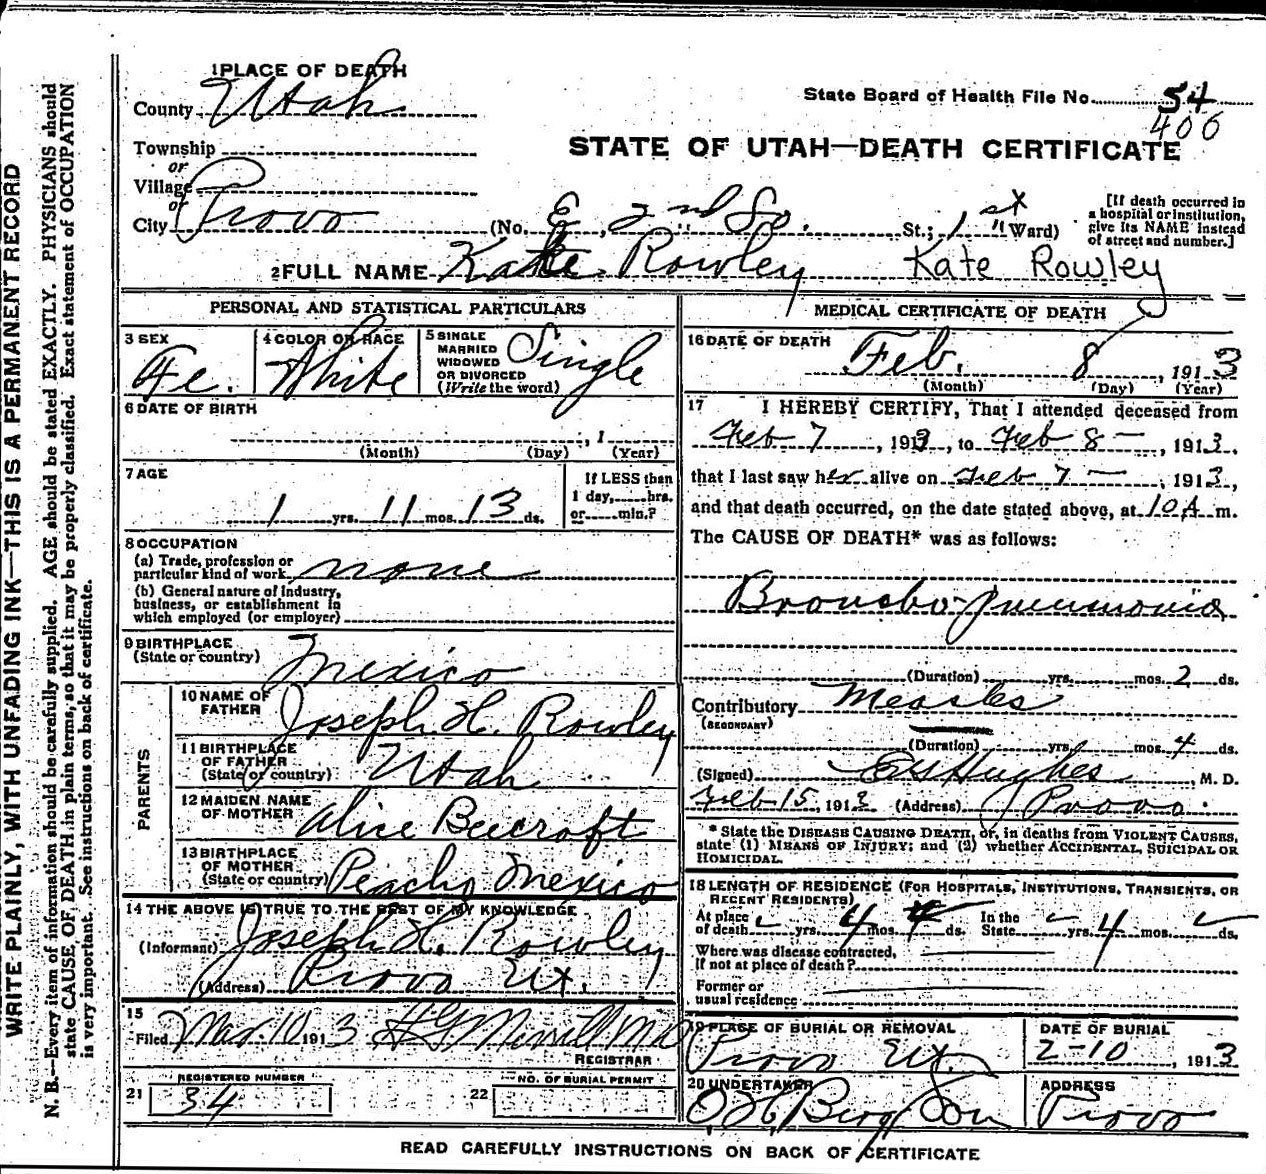 1 PLACE OF DEATH
County Utah
State Board of Health File No. 54
406
Township
or
Village
or
City Provo
STATE OF UTAH—DEATH CERTIFICATE
(No. E, 2nd So. St.; 1st Ward)
[If death occurred in
a hospital or institution,
give its NAME instead
of street and number.]
2 FULL NAME Kate Rowley Kate Rowley
PERSONAL AND STATISTICAL PARTICULARS
3 SEX
Fe.
4 COLOR OR RACE
White
5 SINGLE
MARRIED
WIDOWED
OR DIVORCED
(Write the word)
Single
6 DATE OF BIRTH
, 1
(Month) (Day) (Year)
7 AGE
1 yrs. 11 mos. 13 ds.
If LESS than
1 day, hrs.
or min.?
8 OCCUPATION
(a) Trade, profession or
particular kind of work none
(b) General nature of industry,
business, or establishment in
which employed (or employer)
9 BIRTHPLACE
(State or country) Mexico
PARENTS
10 NAME OF
FATHER Joseph H. Rowley
11 BIRTHPLACE
OF FATHER
(State or country) Utah
12 MAIDEN NAME
OF MOTHER Alice Becroft
13 BIRTHPLACE
OF MOTHER
(State or country) Mexico
14 THE ABOVE IS TRUE TO THE BEST OF MY KNOWLEDGE
(Informant) Joseph H. Rowley
(Address) Provo Ut.
15
Filed Mar. 10 1913 H G Merrill MD
REGISTRAR
21 REGISTERED NUMBER
34
22 NO. OF BURIAL PERMIT
MEDICAL CERTIFICATE OF DEATH
16 DATE OF DEATH
Feb. 8, 1913
(Month) (Day) (Year)
17 I HEREBY CERTIFY, That I attended deceased from
Feb 7, 1913, to Feb 8, 1913,
that I last saw her alive on Feb 7, 1913,
and that death occurred, on the date stated above, at 10 A m.
The CAUSE OF DEATH* was as follows:
Broncho-pneumonia
(Duration) yrs. mos. 2 ds.
Contributory Measles
(SECONDARY)
(Duration) yrs. mos. 4 ds.
(Signed) Hughes, M. D.
Feb 15, 1913 (Address) Provo.
* State the DISEASE CAUSING DEATH, or, in deaths from VIOLENT CAUSES,
state (1) MEANS OF INJURY; and (2) whether ACCIDENTAL, SUICIDAL OR
HOMICIDAL.
18 LENGTH OF RESIDENCE (FOR HOSPITALS, INSTITUTIONS, TRANSIENTS, OR
RECENT RESIDENTS)
At place
of death yrs. 4 mos. ds.
In the
State yrs. 4 mos. ds.
Where was disease contracted,
If not at place of death?
Former or
usual residence
19 PLACE OF BURIAL OR REMOVAL
Provo Ut.
DATE OF BURIAL
2-10, 1913
20 UNDERTAKER
O. H. Berg & Son
ADDRESS
Provo
READ CAREFULLY INSTRUCTIONS ON BACK OF CERTIFICATE
WRITE PLAINLY, WITH UNFADING INK—THIS IS A PERMANENT RECORD
N. B.—Every item of information should be carefully supplied. AGE should be stated EXACTLY. PHYSICIANS should
state CAUSE OF DEATH in plain terms, so that it may be properly classified. Exact statement of OCCUPATION
is very important. See instructions on back of certificate.